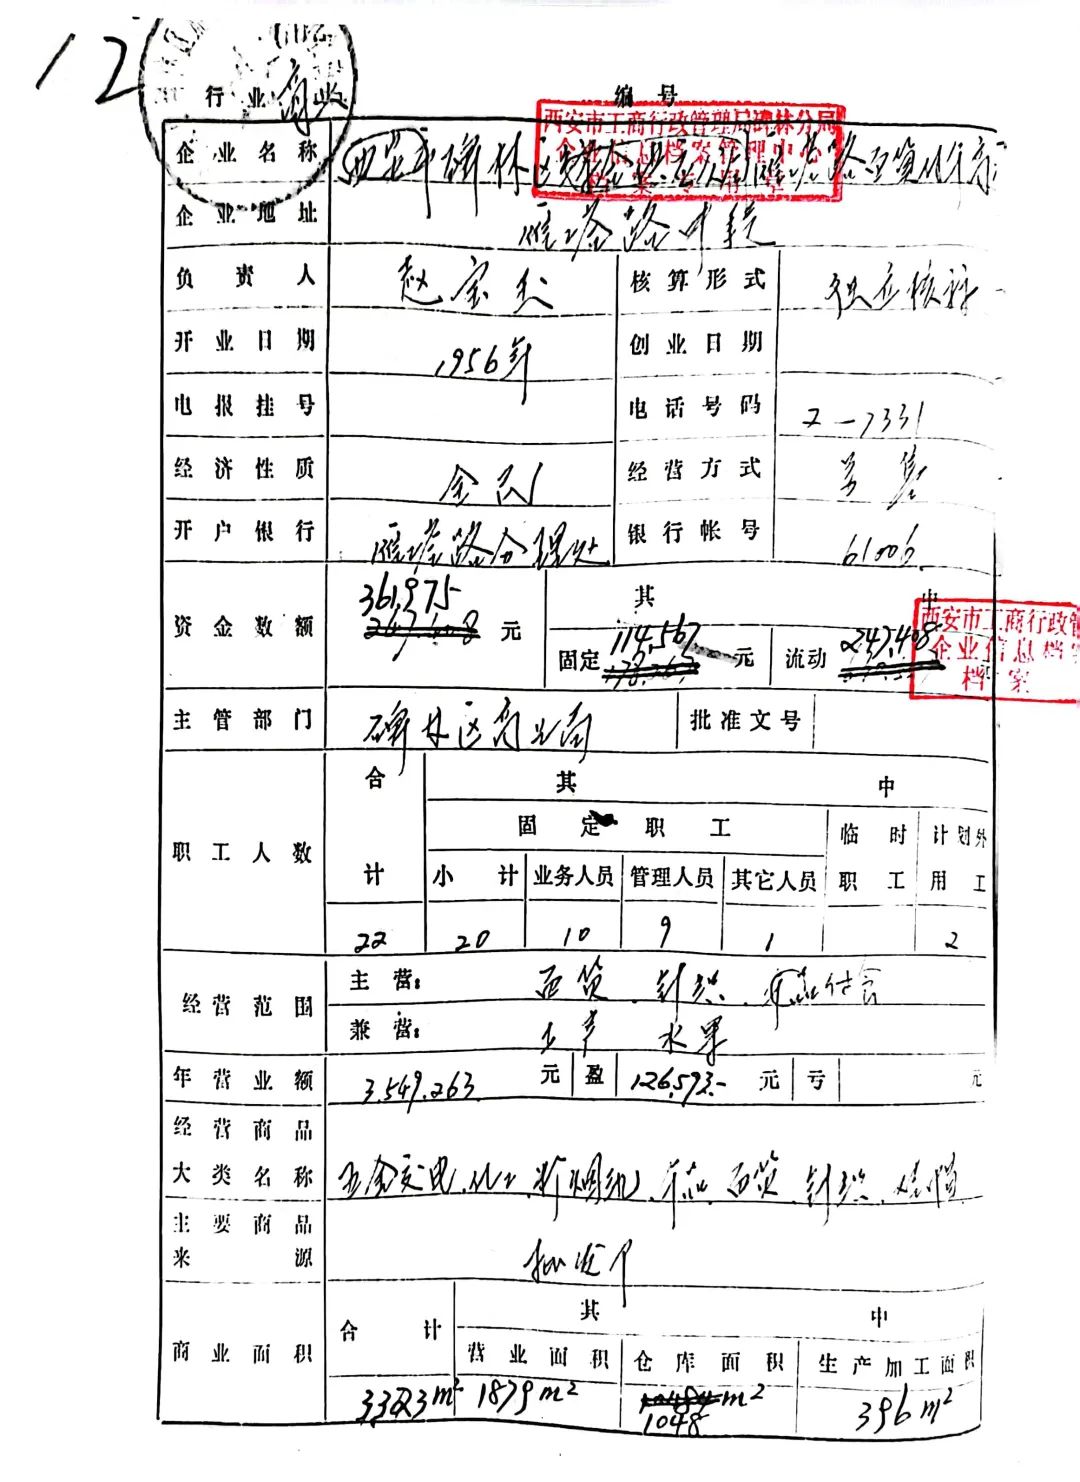 12
行业 商业
编号
西安市工商行政管理局碑林分局
企业信息档案管理中心
企业名称 西安市碑林区 雁塔路百货
企业地址 雁塔路中段
负责人 赵宝 核算形式 独立核算
开业日期 1956年 创业日期
电报挂号 电话号码 2-7331
经济性质 全民 经营方式 零售
开户银行 雁塔路分理处 银行帐号 61006
资金数额 361,975 元 其中
固定 114,567 元 流动 247,408
西安市工商行政管
企业信息档案
档案
主管部门 碑林区商业局 批准文号
职工人数 合计 其中
固定职工 临时职工 计划外用工
小计 业务人员 管理人员 其它人员
22 20 10 9 1 2
经营范围 主营: 百货、针织、
兼营: 土产 水果
年营业额 3,549,263 元 盈 126,593 元 亏 元
经营商品
大类名称 五金交电、化工、 百货、针织、
主要商品
来源 批发
商业面积 合计 其中
营业面积 仓库面积 生产加工面积
3323m² 1879m² m² 396m²
1048